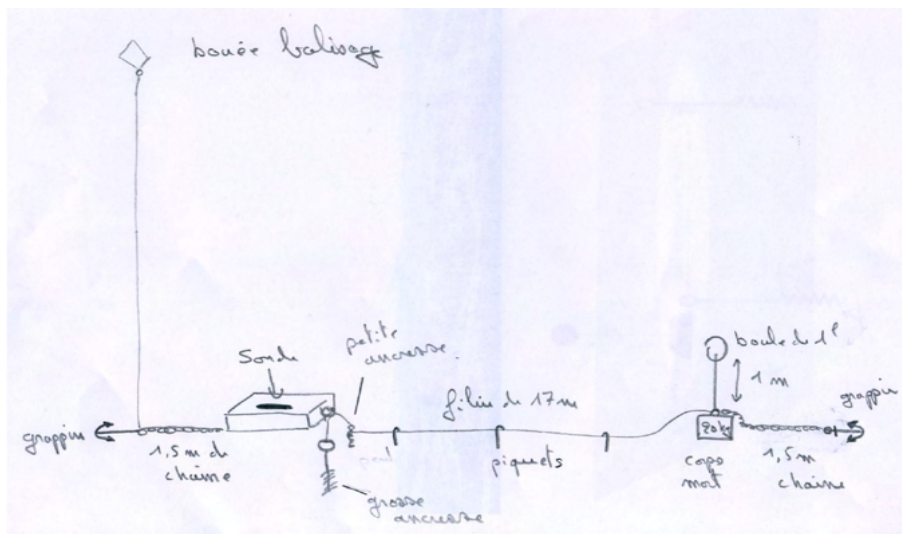 bouée balisage
Sonde
petite
ancresse
filin de 17 m
boule de 1l
1 m
grappin
grappin
1,5 m de
chaine
piquets
20kg
corps
mort
1,5 m
chaine
grosse
ancresse